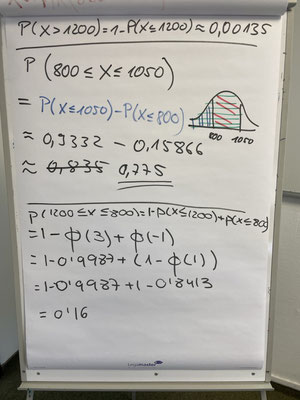 P(X>1200)=1-P(X≤1200)≈0,00135
P(800≤X≤1050)
= P(X≤1050)-P(X≤800)
800 1050
≈ 0,9332 - 0,15866
≈ 0,835 0,775
P(1200≤X≤800)=1-P(X≤1200)+P(X≤800
=1-ϕ(3)+ϕ(-1)
=1-0'9987+(1-ϕ(1))
=1-0'9987+1-0'8413
=0'16
legamaster